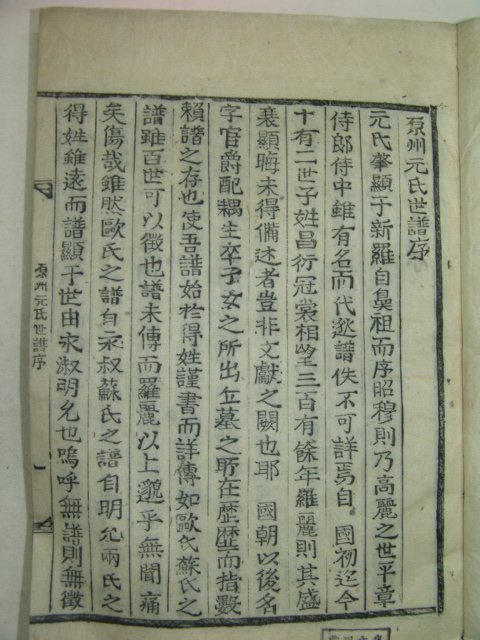 原州元氏世譜序
元氏肇顯于新羅自鼻祖而序昭穆則乃高麗之世平章
侍郎侍中雖有名而代邈譜佚不可詳焉自 國初迄今
十有二世子姓昌衍冠裳相望三百有餘年羅麗則其盛
衰顯晦未得備述者豈非文獻之闕也耶 國朝以後名
字官爵配耦生卒子女之所出丘墓之所在歷歷而指數
賴譜之存也使吾譜始於得姓謹書而詳傳如歐氏蘇氏之
譜雖百世可以徵也譜未傳而羅麗以上邈乎無聞痛
矣傷哉雖然歐氏之譜自永叔蘇氏之譜自明允兩氏之
得姓雖遠而譜顯于世由永叔明允也嗚呼無譜則無徵
原州元氏世譜序
一